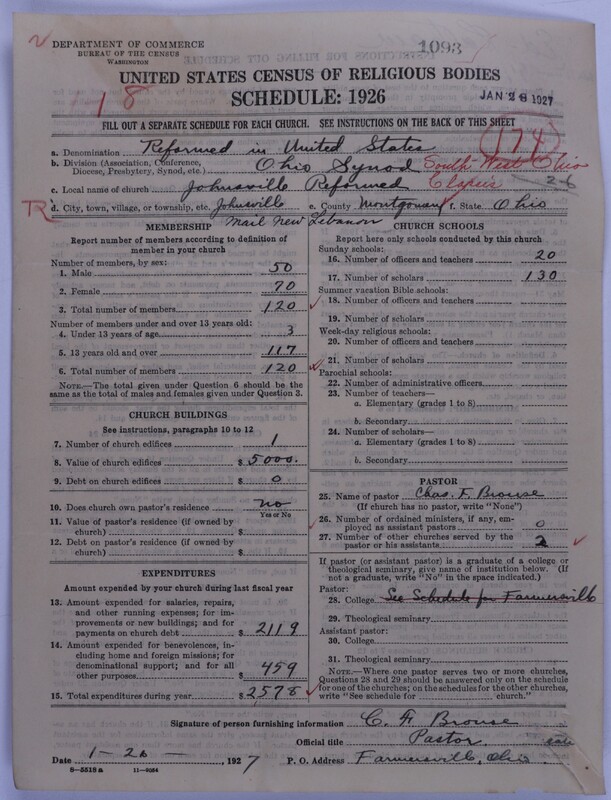 DEPARTMENT OF COMMERCE
BUREAU OF THE CENSUS
WASHINGTON
1093
UNITED STATES CENSUS OF RELIGIOUS BODIES
SCHEDULE: 1926
JAN 28 1927
18
FILL OUT A SEPARATE SCHEDULE FOR EACH CHURCH. SEE INSTRUCTIONS ON THE BACK OF THIS SHEET
174
a. Denomination Reformed in United States
b. Division (Association, Conference, Diocese, Presbytery, Synod, etc.) Ohio Synod South West Ohio
c. Local name of church Johnsville Reformed Classis 26
d. City, town, village, or township, etc. Johnsville e. County Montgomery f. State Ohio
Mail New Lebanon
MEMBERSHIP
Report number of members according to definition of member in your church
Number of members, by sex:
1. Male 50
2. Female 70
3. Total number of members 120
Number of members under and over 13 years old:
4. Under 13 years of age 3
5. 13 years old and over 117
6. Total number of members 120
NOTE.—The total given under Question 6 should be the same as the total of males and females given under Question 3.
CHURCH BUILDINGS
See instructions, paragraphs 10 to 12
7. Number of church edifices 1
8. Value of church edifices $ 5000.
9. Debt on church edifices $ 0
10. Does church own pastor's residence no
Yes or No
11. Value of pastor's residence (if owned by church) $
12. Debt on pastor's residence (if owned by church) $
EXPENDITURES
Amount expended by your church during last fiscal year
13. Amount expended for salaries, repairs, and other running expenses; for improvements or new buildings; and for payments on church debt $ 2119
14. Amount expended for benevolences, including home and foreign missions; for denominational support; and for all other purposes $ 459
15. Total expenditures during year $ 2578
CHURCH SCHOOLS
Report here only schools conducted by this church
Sunday schools:
16. Number of officers and teachers 20
17. Number of scholars 130
Summer vacation Bible schools:
18. Number of officers and teachers
19. Number of scholars
Week-day religious schools:
20. Number of officers and teachers
21. Number of scholars
Parochial schools:
22. Number of administrative officers
23. Number of teachers—
a. Elementary (grades 1 to 8)
b. Secondary
24. Number of scholars—
a. Elementary (grades 1 to 8)
b. Secondary
PASTOR
25. Name of pastor Chas. F. Brouse
(If church has no pastor, write "None")
26. Number of ordained ministers, if any, employed as assistant pastors 0
27. Number of other churches served by the pastor or his assistants 2
If pastor (or assistant pastor) is a graduate of a college or theological seminary, give name of institution below. (If not a graduate, write "No" in the space indicated.)
Pastor:
28. College See Schedule for Farmersville
29. Theological seminary
Assistant pastor:
30. College
31. Theological seminary
NOTE.—Where one pastor serves two or more churches, Questions 28 and 29 should be answered only on the schedule for one of the churches; on the schedules for the other churches, write "See schedule for church."
Signature of person furnishing information C. F. Brouse
Official title Pastor
Date 1-26-, 1927 P. O. Address Farmersville, Ohio
8—5518a 11—9084